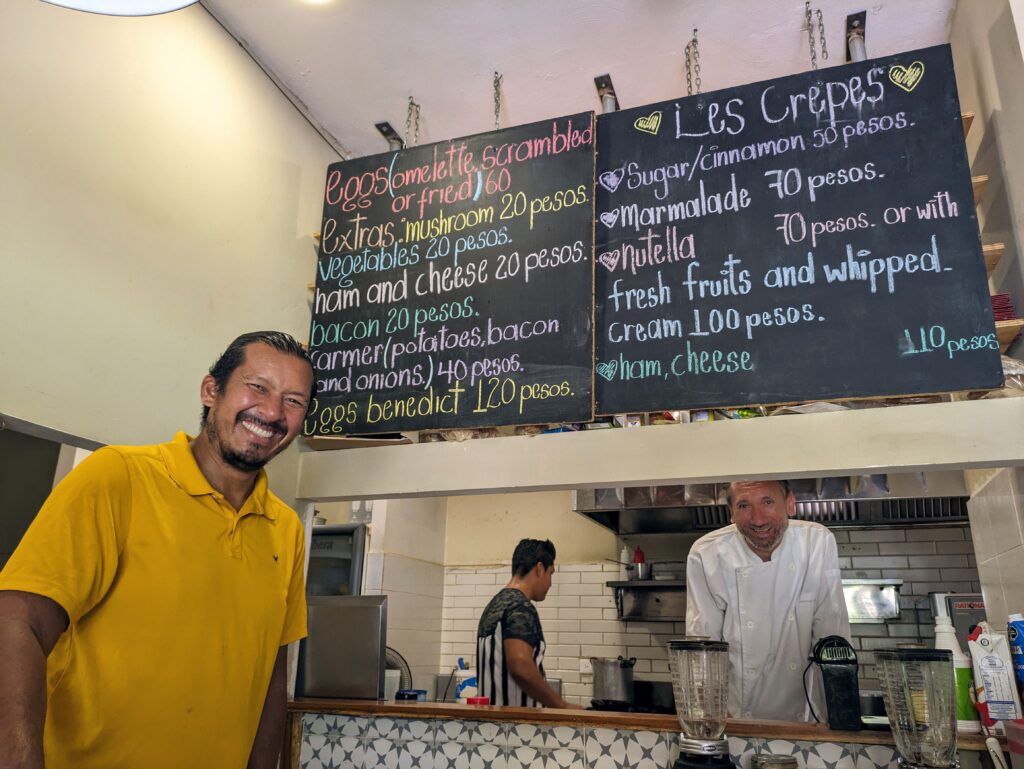 eggs(omelette, scrambled
or fried) 60
extras: mushroom 20 pesos.
vegetables 20 pesos.
ham and cheese 20 pesos.
bacon 20 pesos.
farmer(potatoes, bacon
and onions.) 40 pesos.
eggs benedict 120 pesos.
Les Crepes
Sugar/cinnamon 50 pesos.
marmalade 70 pesos.
nutella 70 pesos. or with
fresh fruits and whipped-
cream 100 pesos.
ham, cheese 110 pesos
RATIONAL